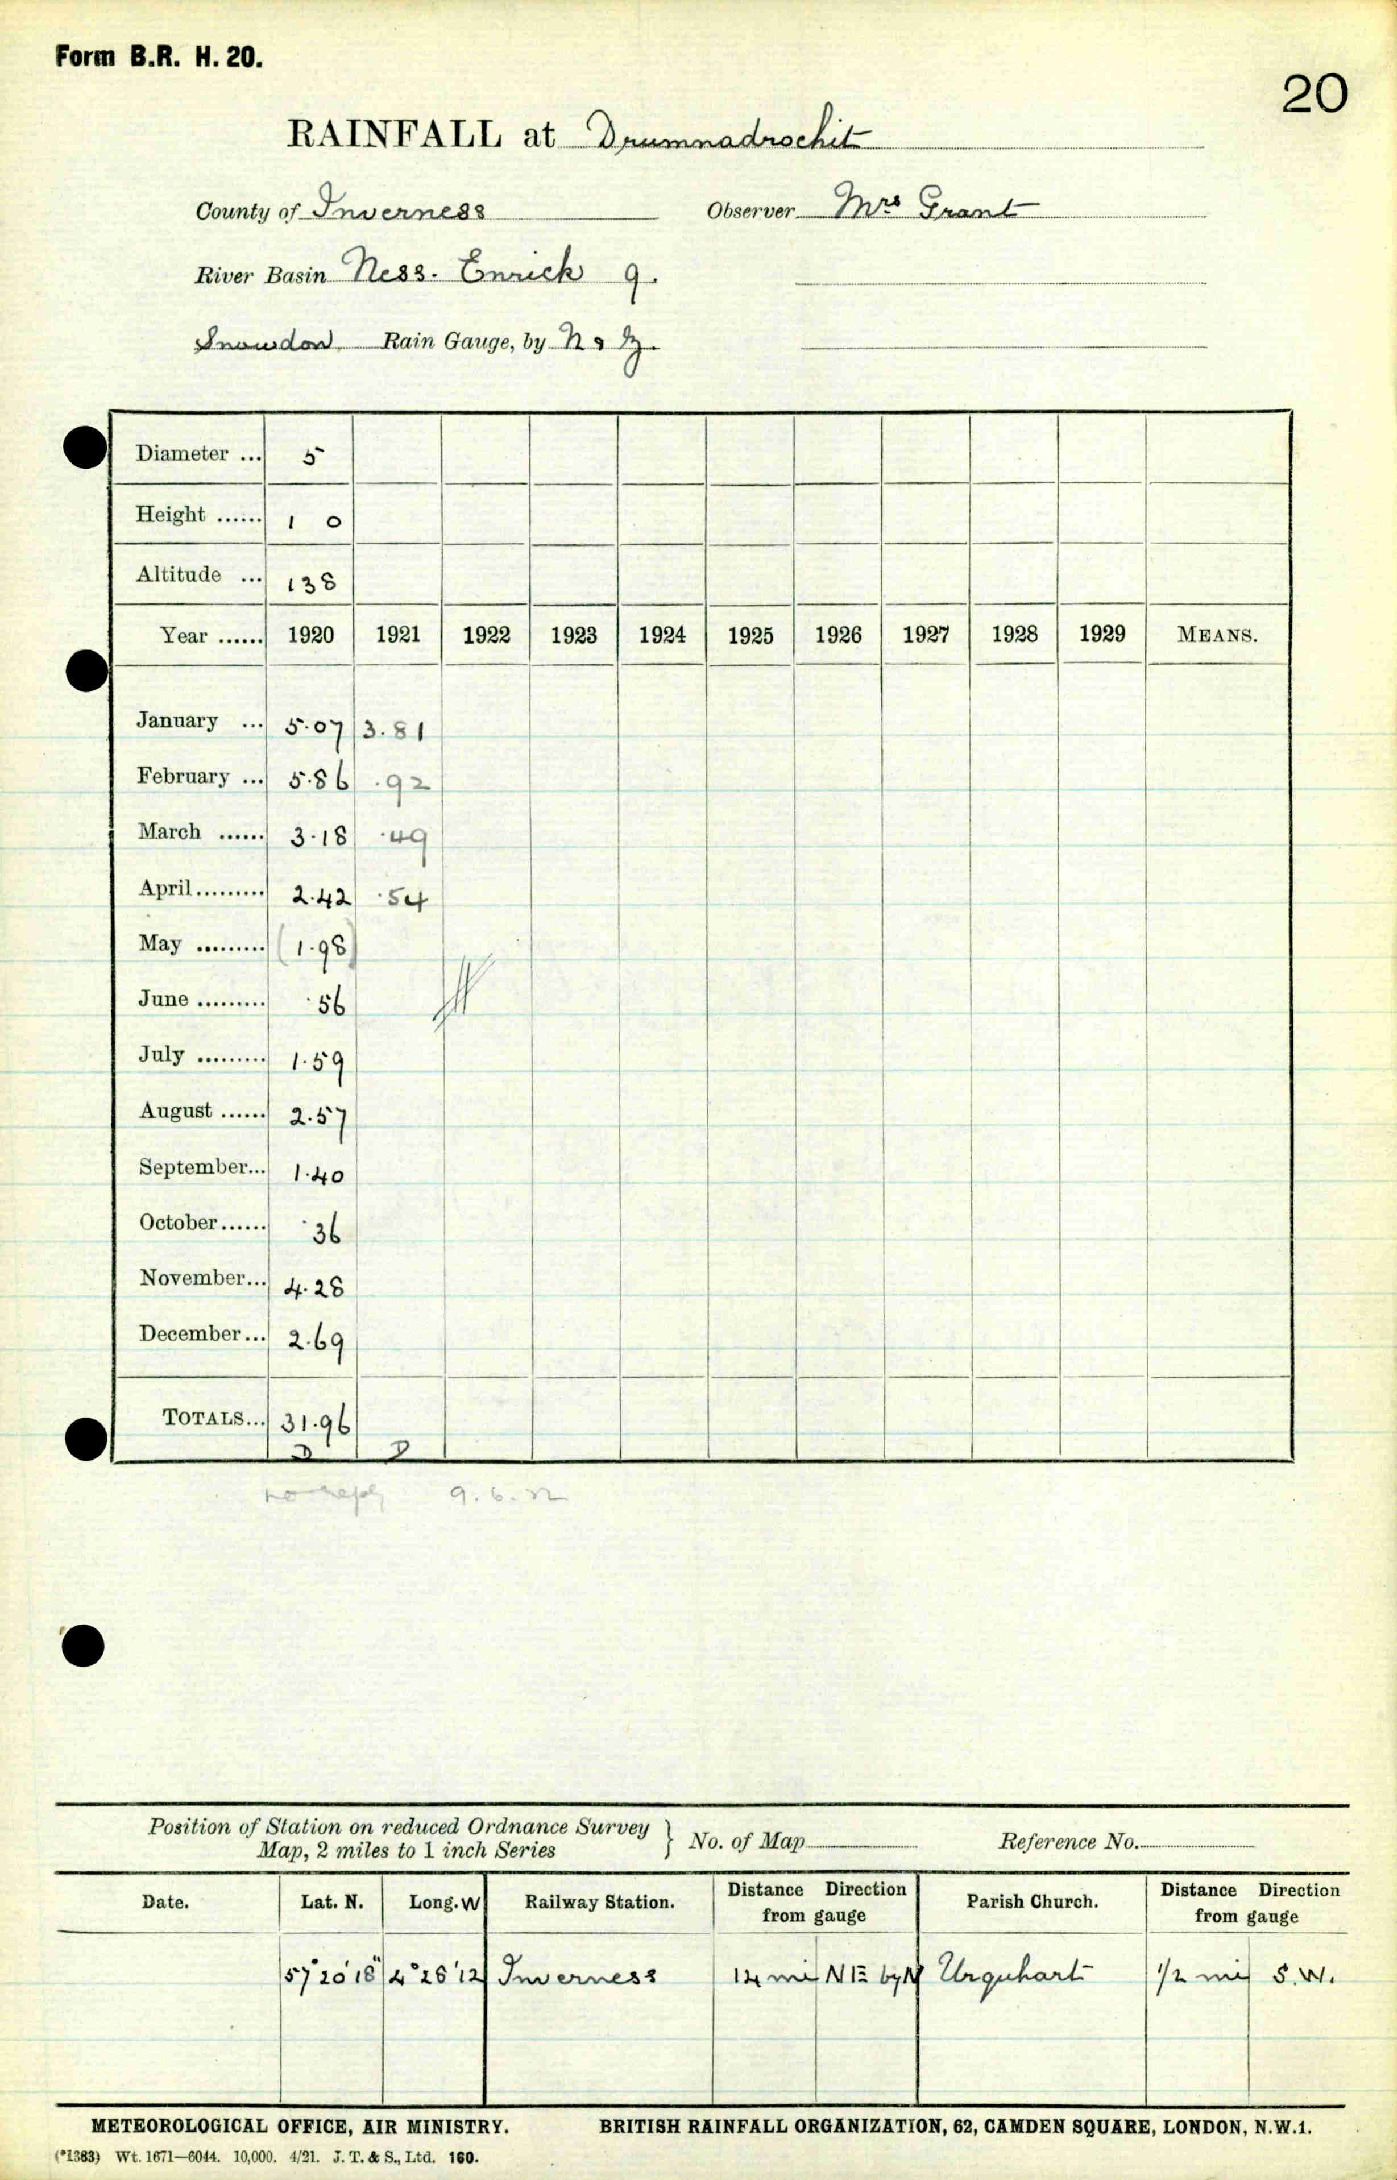 Form B.R. H. 20.
20
RAINFALL at Drumnadrochit
County of Inverness Observer Mrs Grant
River Basin Ness. Enrick 9.
Snowdon Rain Gauge, by N & Z.
Diameter ... 5
Height ...... 1 0
Altitude ... 138
Year ...... 1920 1921 1922 1923 1924 1925 1926 1927 1928 1929 MEANS.
January ... 5.07 3.81
February ... 5.86 .92
March ...... 3.18 .49
April......... 2.42 .54
May ......... (1.98)
June ......... .56
July ......... 1.59
August ...... 2.57
September... 1.40
October...... .36
November... 4.28
December... 2.69
TOTALS... 31.96
D D
no reply 9.6.22
Position of Station on reduced Ordnance Survey
Map, 2 miles to 1 inch Series } No. of Map Reference No.
Date. Lat. N. Long. W Railway Station. Distance Direction from gauge Parish Church. Distance Direction from gauge
57°20'18" 4°28'12 Inverness 14 mi NE by N Urquhart 1/2 mi S.W.
METEOROLOGICAL OFFICE, AIR MINISTRY. BRITISH RAINFALL ORGANIZATION, 62, CAMDEN SQUARE, LONDON, N.W.1.
(*1383) Wt. 1671—6044. 10,000. 4/21. J. T. & S., Ltd. 160.